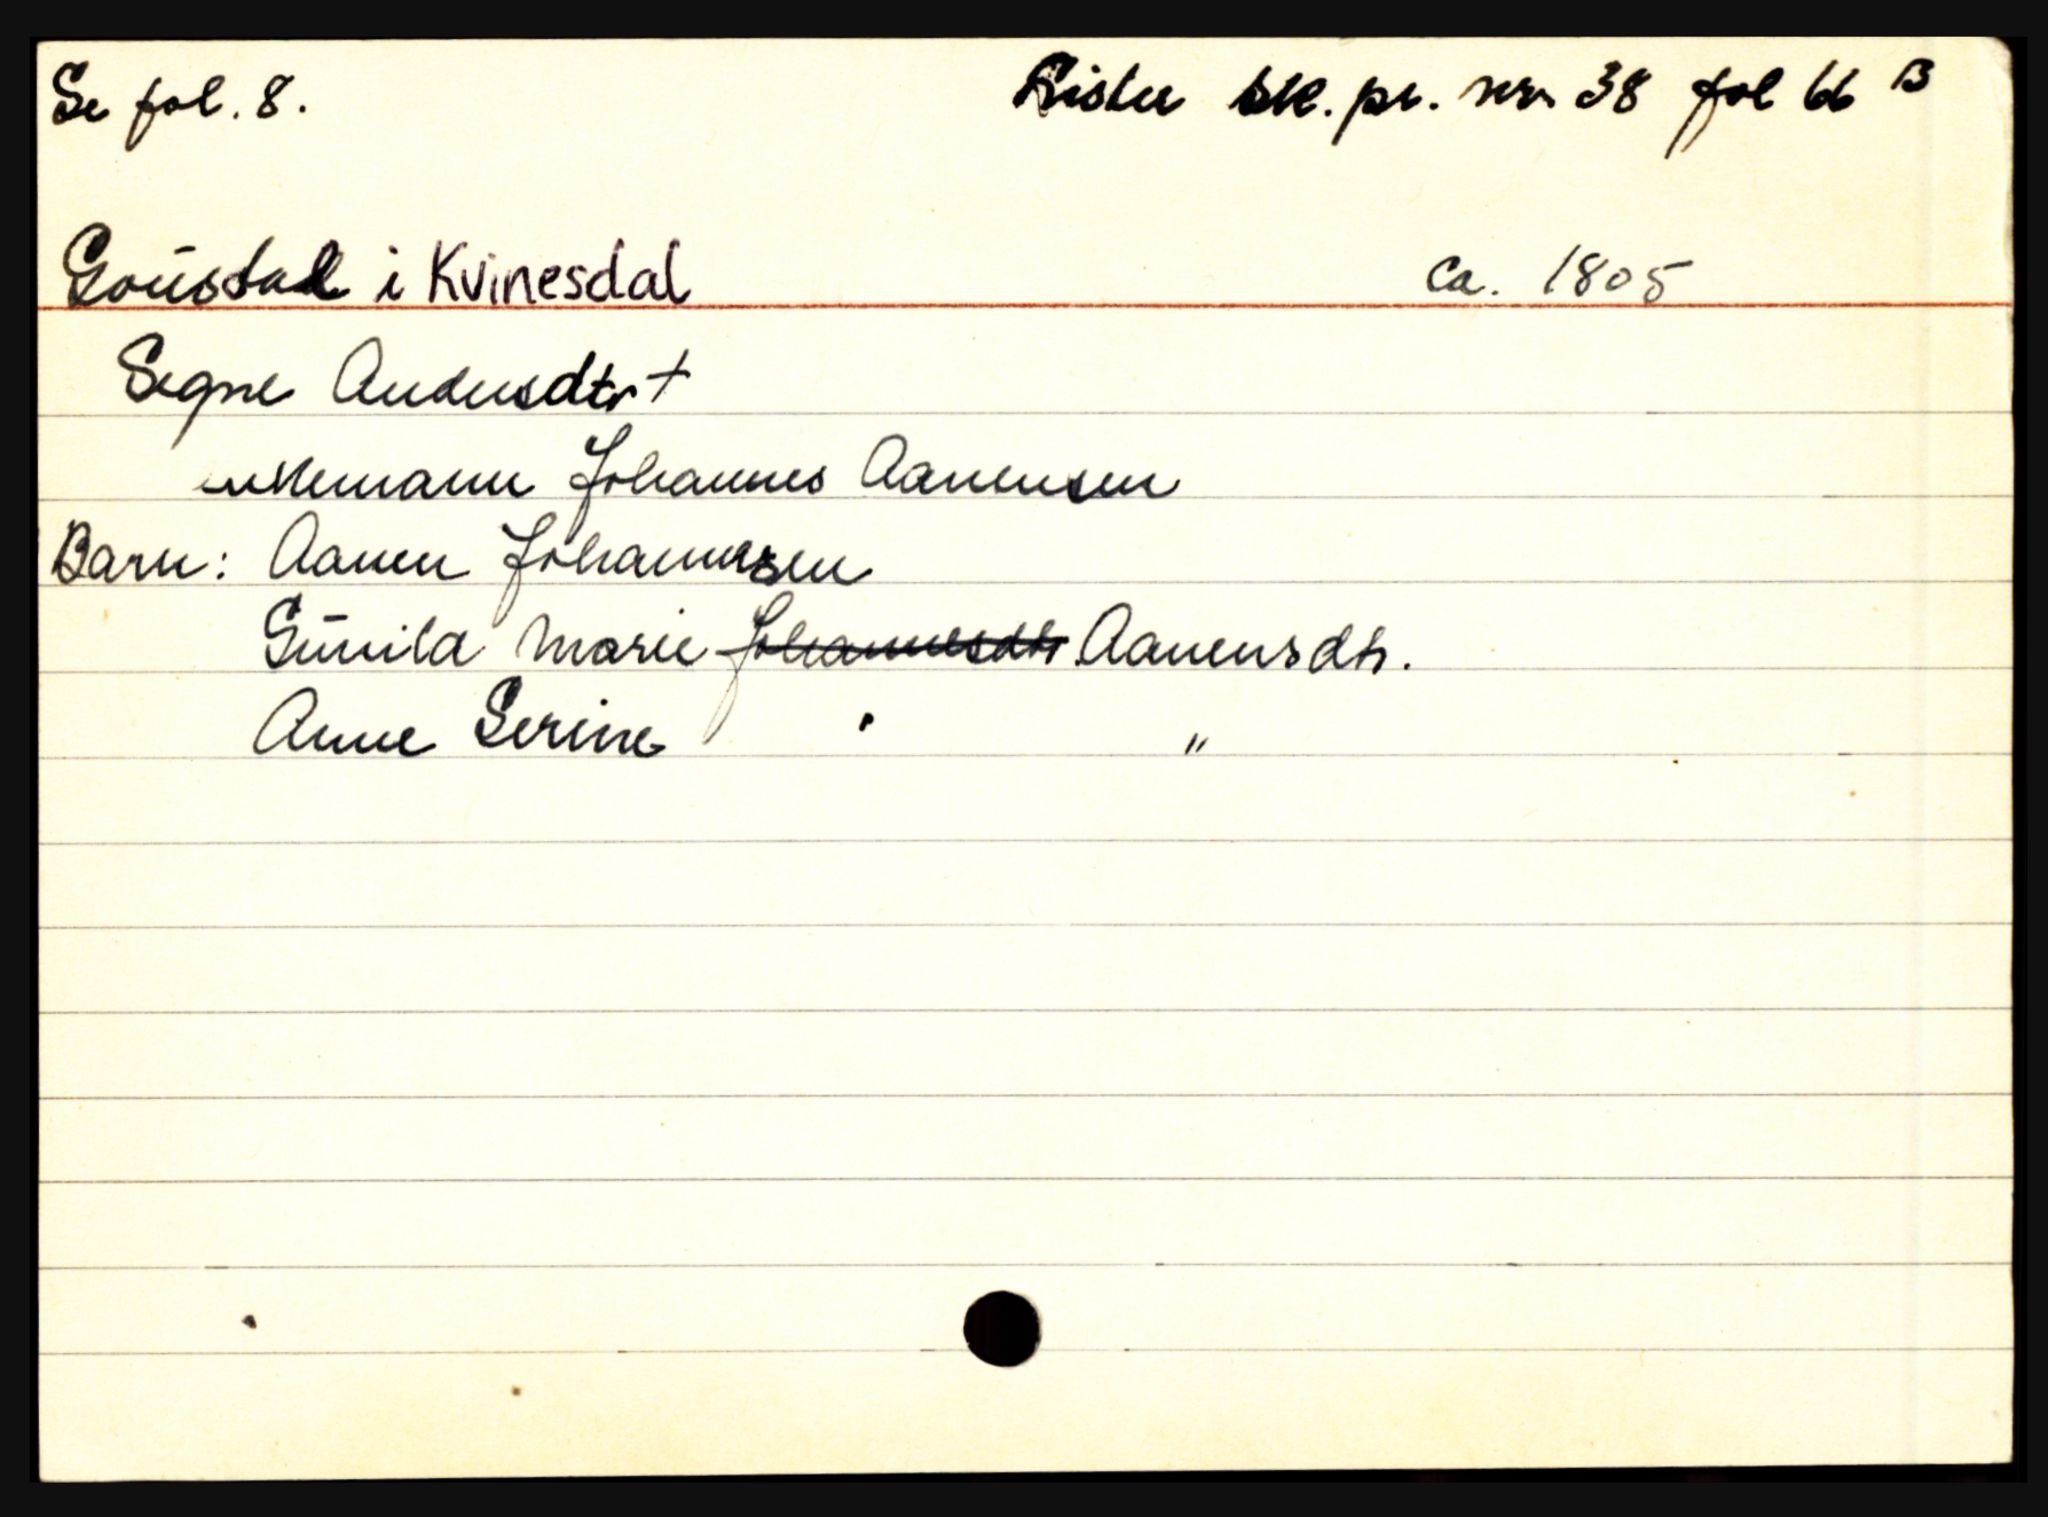 Se fol. 8.
Lister sk. pr. nr. 38 fol 66 B
Goŭstad i Kvinesdal
ca. 1805
Segne Andersdtr +
enkemann Johannes Aanensen
Barn: Aanen Johannesen
Gŭnild Marie ~~Johannesdtr~~ Aanensdtr.
Anne Serine " "